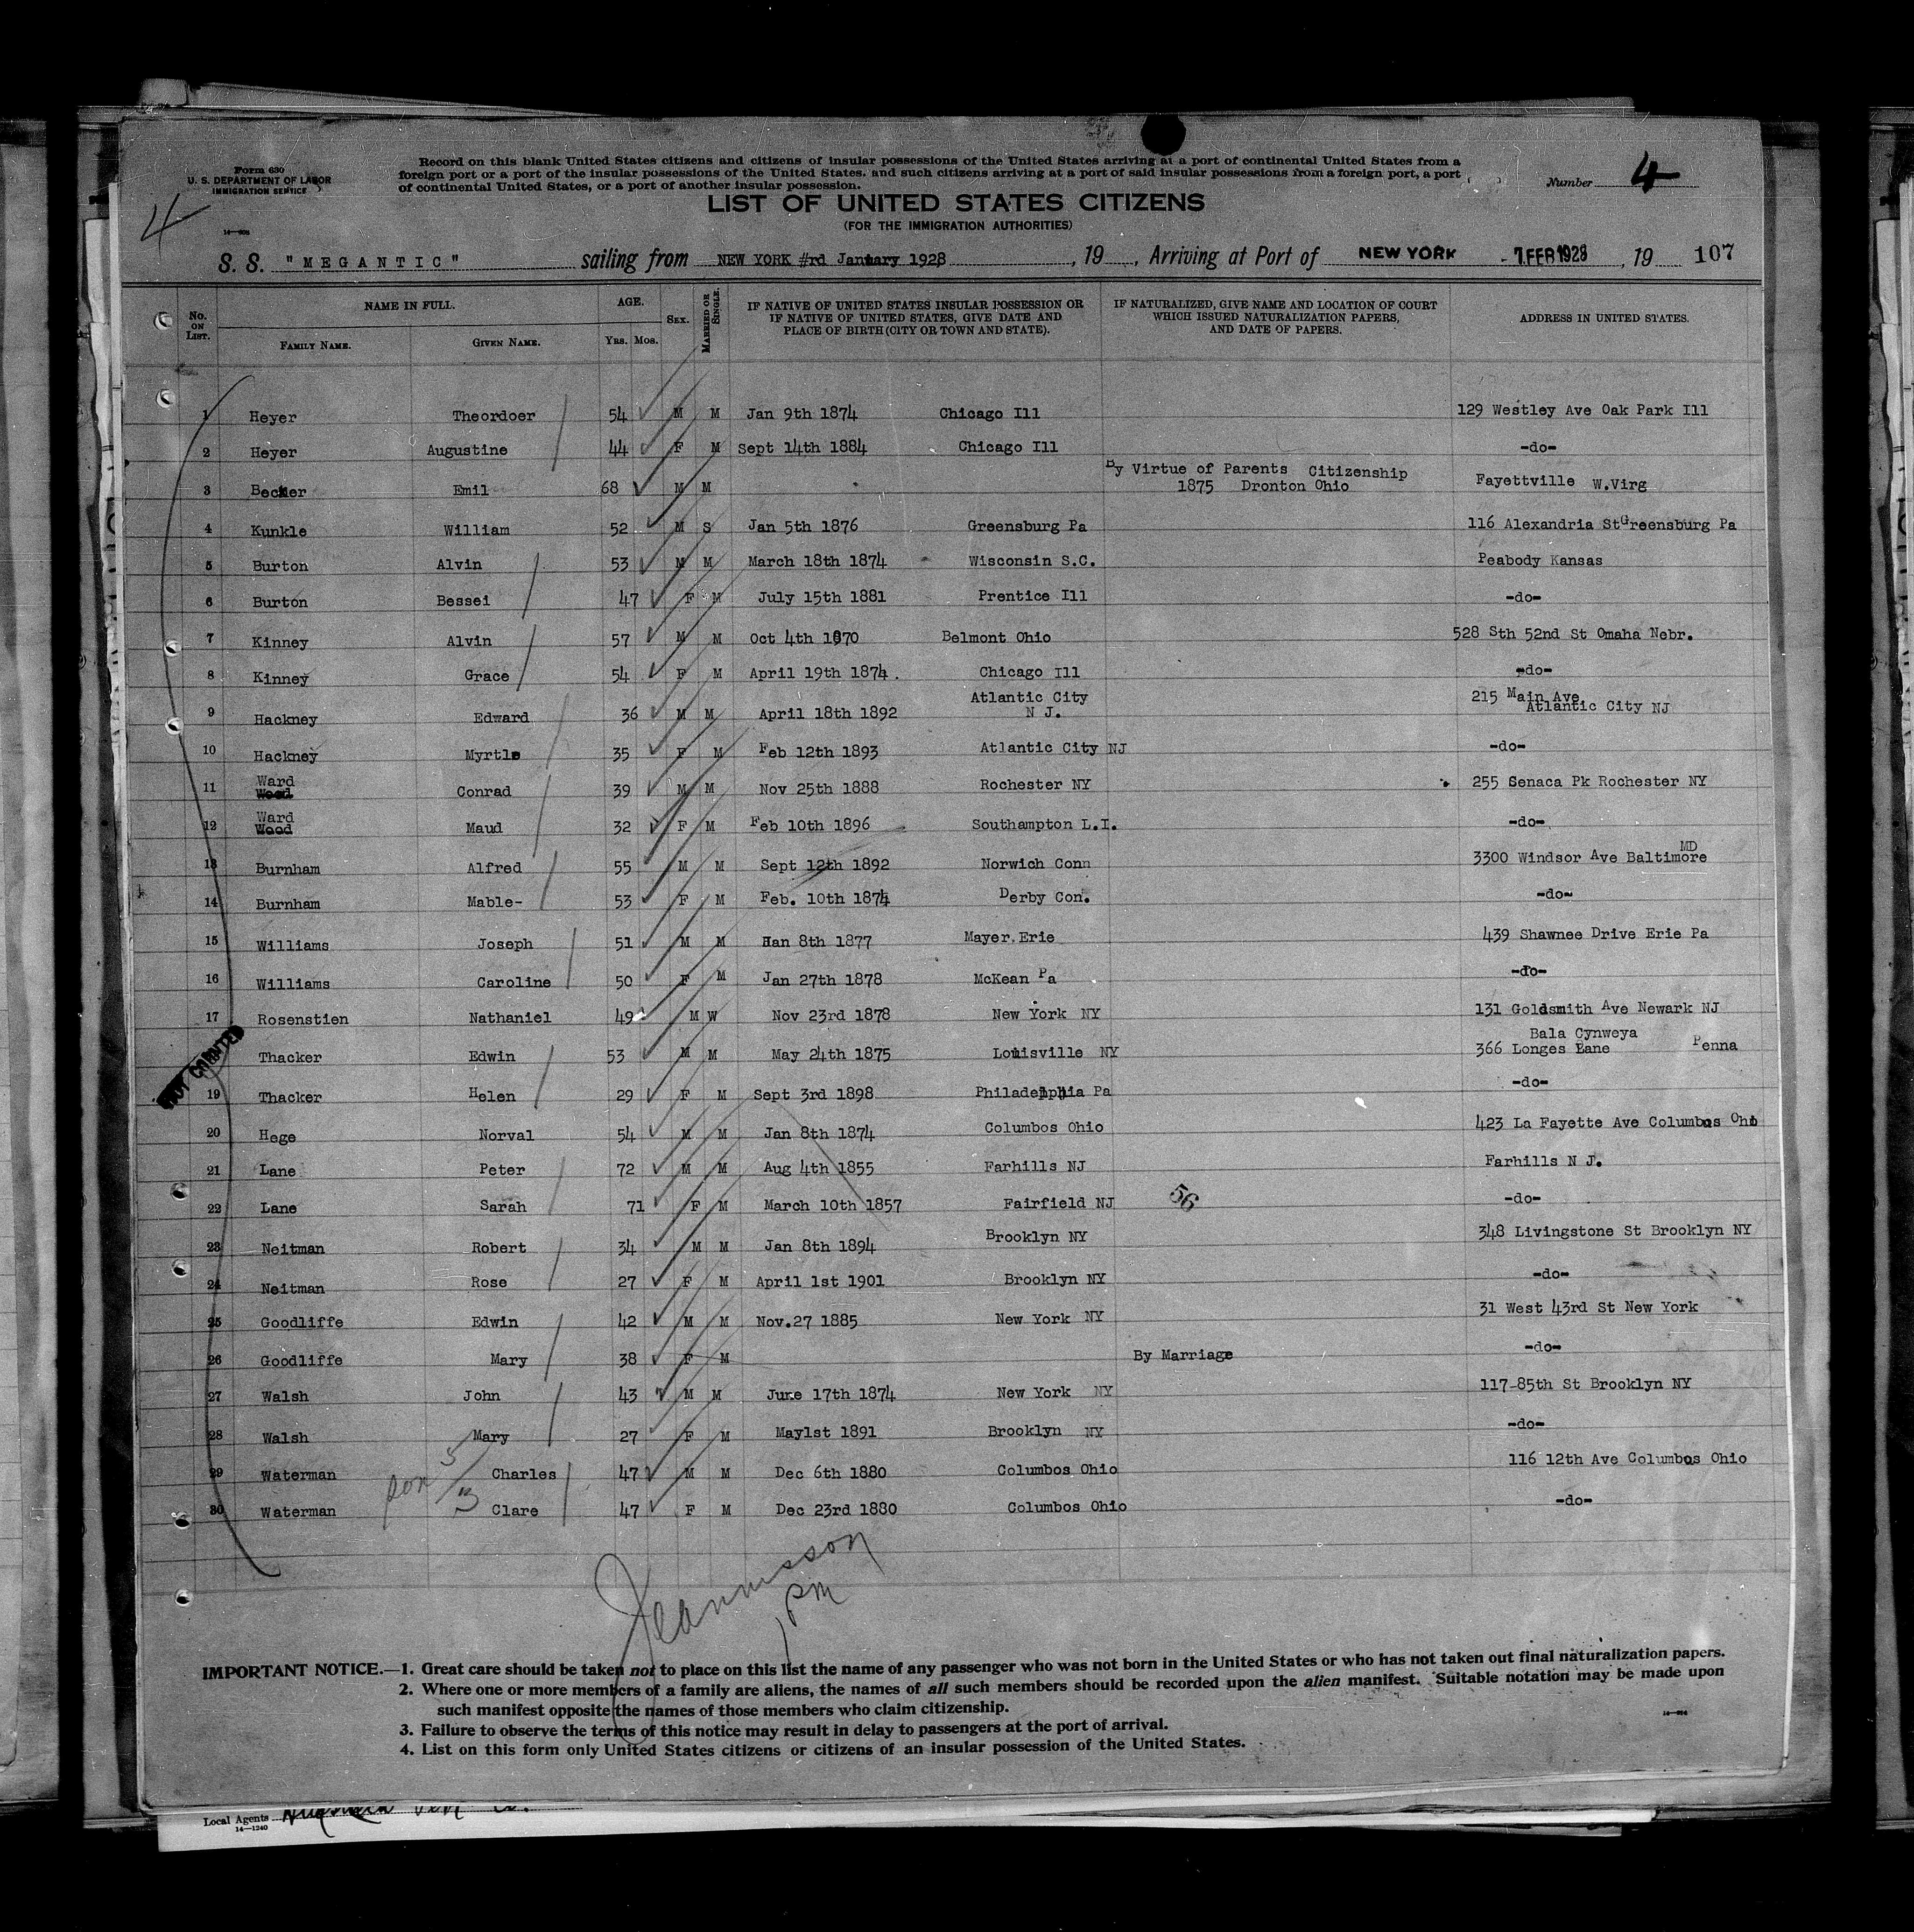 Form 630
U. S. DEPARTMENT OF LABOR
IMMIGRATION SERVICE
Record on this blank United States citizens and citizens of insular possessions of the United States arriving at a port of continental United States from a
foreign port or a port of the insular possessions of the United States, and such citizens arriving at a port of said insular possessions from a foreign port, a port
of continental United States, or a port of another insular possession.
Number 4
4
LIST OF UNITED STATES CITIZENS
(FOR THE IMMIGRATION AUTHORITIES)
S. S. "MEGANTIC" sailing from NEW YORK #rd January 1928, 19 , Arriving at Port of NEW YORK - 7 FEB 1928, 19 107
No. ON LIST. NAME IN FULL. AGE. SEX. MARRIED OR SINGLE. IF NATIVE OF UNITED STATES INSULAR POSSESSION OR IF NATIVE OF UNITED STATES, GIVE DATE AND PLACE OF BIRTH (CITY OR TOWN AND STATE). IF NATURALIZED, GIVE NAME AND LOCATION OF COURT WHICH ISSUED NATURALIZATION PAPERS, AND DATE OF PAPERS. ADDRESS IN UNITED STATES.
FAMILY NAME. GIVEN NAME. YRS. MOS.
1 Heyer Theordoer 54 M M Jan 9th 1874 Chicago Ill 129 Westley Ave Oak Park Ill
2 Heyer Augustine 44 F M Sept 14th 1884 Chicago Ill -do-
3 Becker Emil 68 M M By Virtue of Parents Citizenship 1875 Dronton Ohio Fayettville W.Virg
4 Kunkle William 52 M S Jan 5th 1876 Greensburg Pa 116 Alexandria St Greensburg Pa
5 Burton Alvin 53 M M March 18th 1874 Wisconsin S.C. Peabody Kansas
6 Burton Bessei 47 F M July 15th 1881 Prentice Ill -do-
7 Kinney Alvin 57 M M Oct 4th 1870 Belmont Ohio 528 Sth 52nd St Omaha Nebr.
8 Kinney Grace 54 F M April 19th 1874. Chicago Ill -do-
9 Hackney Edward 36 M M April 18th 1892 Atlantic City N J. 215 Main Ave Atlantic City NJ
10 Hackney Myrtle 35 F M Feb 12th 1893 Atlantic City NJ -do-
11 Ward Wood Conrad 39 M M Nov 25th 1888 Rochester NY 255 Senaca Pk Rochester NY
12 Ward Wood Maud 32 F M Feb 10th 1896 Southampton L.I. -do-
13 Burnham Alfred 55 M M Sept 12th 1892 Norwich Conn 3300 Windsor Ave Baltimore MD
14 Burnham Mable- 53 F M Feb. 10th 1874 Derby Con. -do-
15 Williams Joseph 51 M M Han 8th 1877 Mayer.Erie 439 Shawnee Drive Erie Pa
16 Williams Caroline 50 F M Jan 27th 1878 McKean Pa -do-
17 Rosenstien Nathaniel 49 M W Nov 23rd 1878 New York NY 131 Goldsmith Ave Newark NJ
Thacker Edwin 53 M M May 24th 1875 Louisville NY 366 Longes Lane Bala Cynweya Penna
19 Thacker Helen 29 F M Sept 3rd 1898 Philadelphia Pa -do-
20 Hege Norval 54 M M Jan 8th 1874 Columbos Ohio 423 La Fayette Ave Columbus Ohio
21 Lane Peter 72 M M Aug 4th 1855 Farhills NJ Farhills N J.
22 Lane Sarah 71 F M March 10th 1857 Fairfield NJ 56 -do-
23 Neitman Robert 34 M M Jan 8th 1894 Brooklyn NY 348 Livingstone St Brooklyn NY
24 Neitman Rose 27 F M April 1st 1901 Brooklyn NY -do-
25 Goodliffe Edwin 42 M M Nov.27 1885 New York NY 31 West 43rd St New York
26 Goodliffe Mary 38 F M By Marriage -do-
27 Walsh John 43 M M June 17th 1874 New York NY 117-85th St Brooklyn NY
28 Walsh Mary 27 F M May1st 1891 Brooklyn NY -do-
29 Waterman Charles 47 M M Dec 6th 1880 Columbos Ohio 116 12th Ave Columbus Ohio
30 Waterman Clare 47 F M Dec 23rd 1880 Columbos Ohio -do-
PM
IMPORTANT NOTICE.—1. Great care should be taken not to place on this list the name of any passenger who was not born in the United States or who has not taken out final naturalization papers.
2. Where one or more members of a family are aliens, the names of all such members should be recorded upon the alien manifest. Suitable notation may be made upon
such manifest opposite the names of those members who claim citizenship.
3. Failure to observe the terms of this notice may result in delay to passengers at the port of arrival.
4. List on this form only United States citizens or citizens of an insular possession of the United States.
Local Agents
14—1240